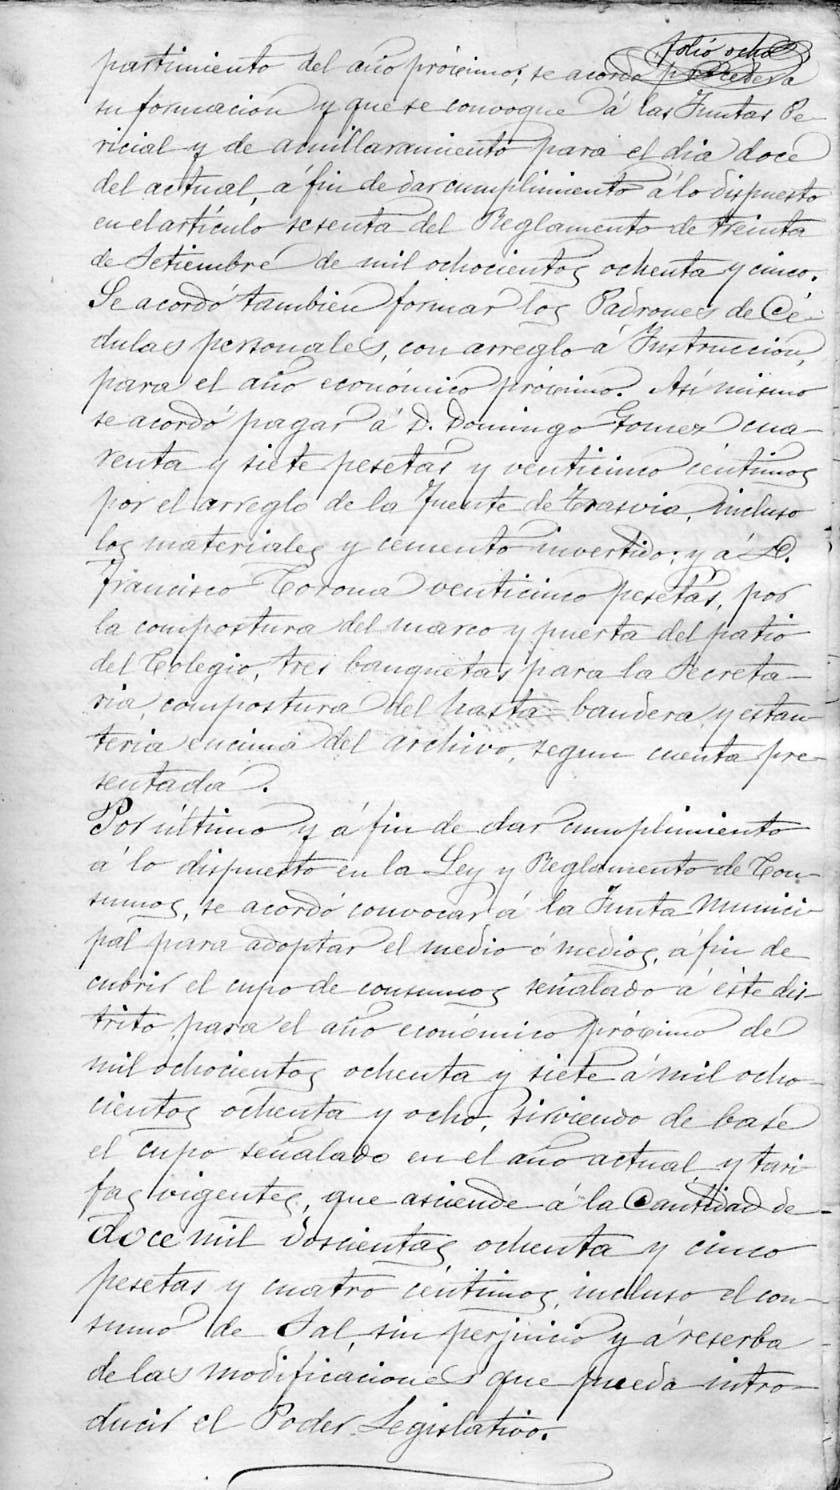 folio ocho
partimiento del año próximo; se acordó proceder a
su formacion y que se convoque á las Juntas Pe-
ricial y de amillaramiento para el dia doce
del actual, á fin de dar cumplimiento á lo dispuesto
en el artículo sesenta del Reglamento de treinta
de Setiembre de mil ochocientos ochenta y cinco.
Se acordó tambien formar los Padrones de Cé-
dulas personales, con arreglo á Instruccion,
para el año económico próximo. Asi mismo
se acordó pagar á D. Domingo Gomez cua-
renta y siete pesetas y venticinco céntimos
por el arreglo de la fuente de Trasvia, incluso
los materiales y cemento invertido; y á D.
Francisco Corona venticinco pesetas, por
la compostura del marco y puerta del patio
del Colegio, tres banquetas para la Secreta-
ria, compostura del hasta-bandera y estan-
teria encima del archivo, segun cuenta pre-
sentada.
Por último y á fin de dar cumplimiento
á lo dispuesto en la Ley y Reglamento de Con-
sumos, se acordó convocar á la Junta Munici-
pal para adoptar el medio ó medios, á fin de
cubrir el cupo de consumos señalado á éste dis-
trito, para el año económico próximo de
mil ochocientos ochenta y siete á mil ocho-
cientos ochenta y ocho, sirviendo de base
el cupo señalado en el año actual y tari-
fas vigentes, que asciende á la Cantidad de
doce mil doscientas ochenta y cinco
pesetas y cuatro céntimos, incluso el con-
sumo de Sal, sin perjuicio y á reserba
de las modificaciones que pueda intro-
ducir el Poder Legislativo.